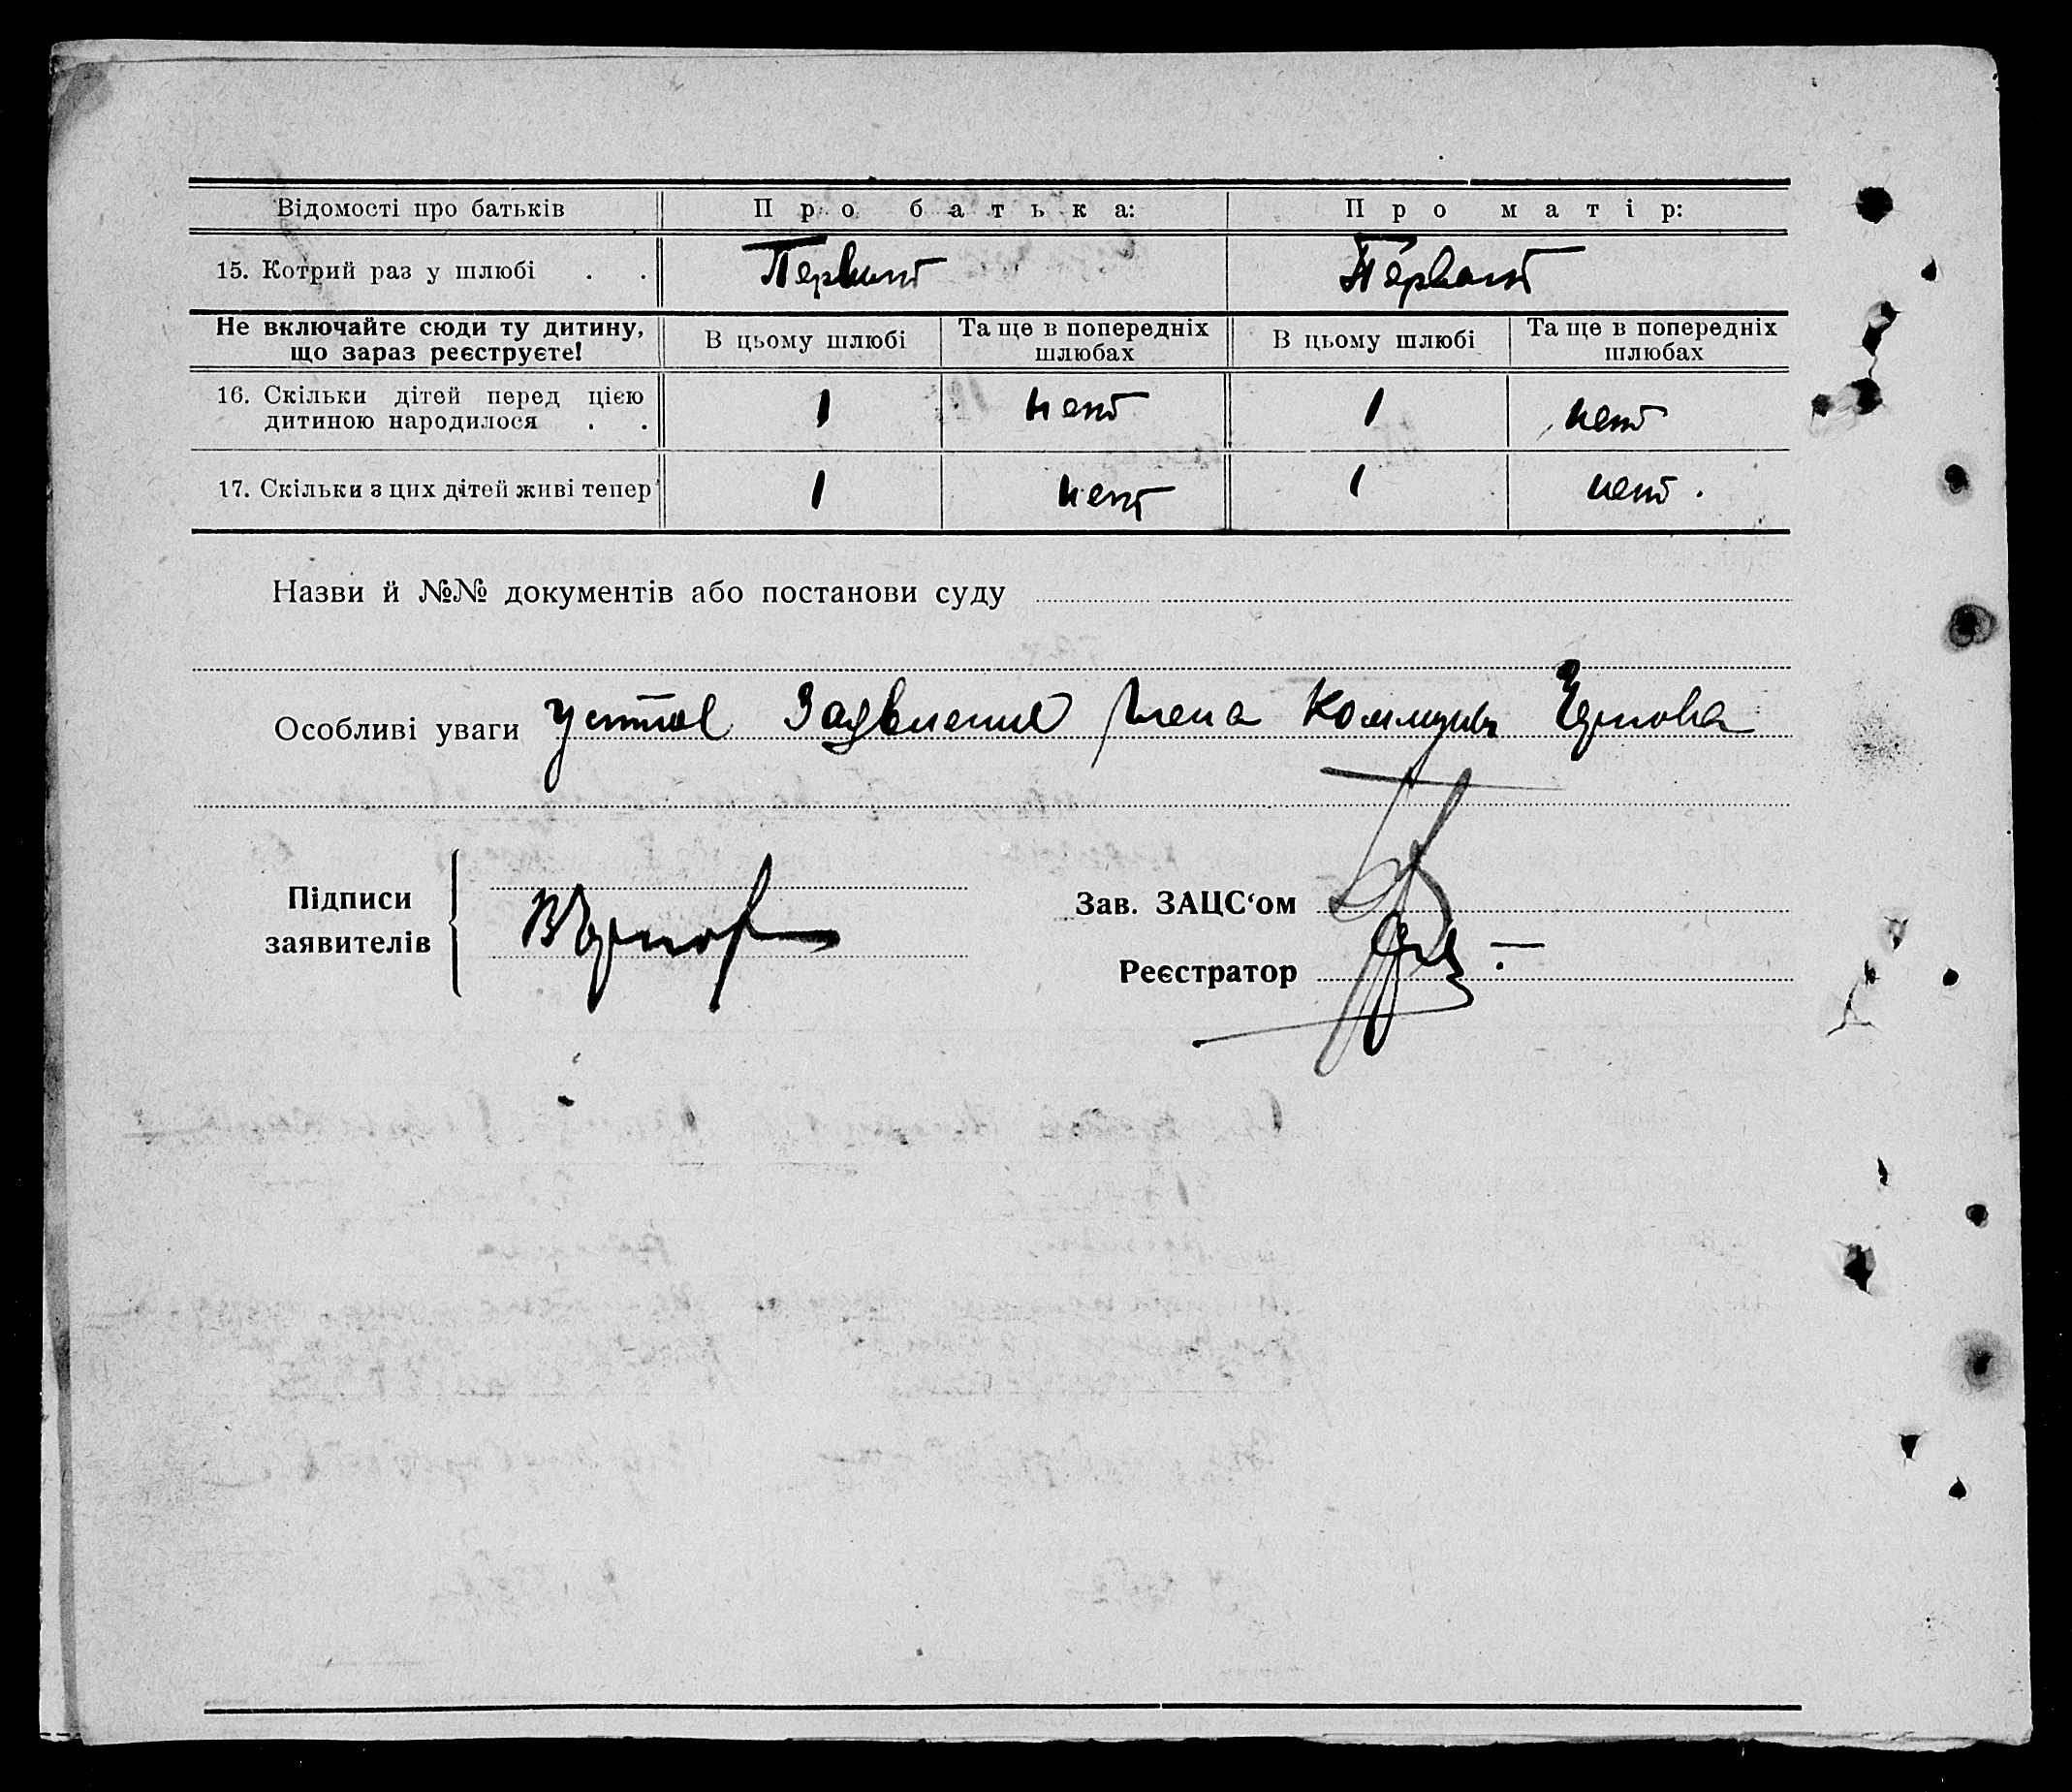 Відомості про батьків Про батька: Про матір:
15. Котрий раз у шлюбі . . Первый Первый
Не включайте сюди ту дитину, що зараз реєструєте! В цьому шлюбі Та ще в попередніх шлюбах В цьому шлюбі Та ще в попередніх шлюбах
16. Скільки дітей перед цією дитиною народилося . . 1 нет 1 нет
17. Скільки з цих дітей живі тепер 1 нет 1 нет.
Назви й №№ документів або постанови суду
Особливі уваги Устное Заявление члена Коммуны
Підписи заявителів
Зав. ЗАЦС'ом
Реєстратор